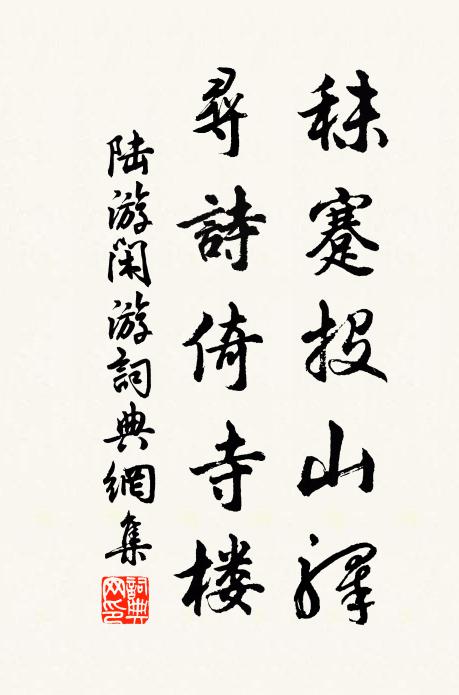 秣蹇投山驛
尋詩倚寺楼
陆游闲游詞典網集
詞典網印